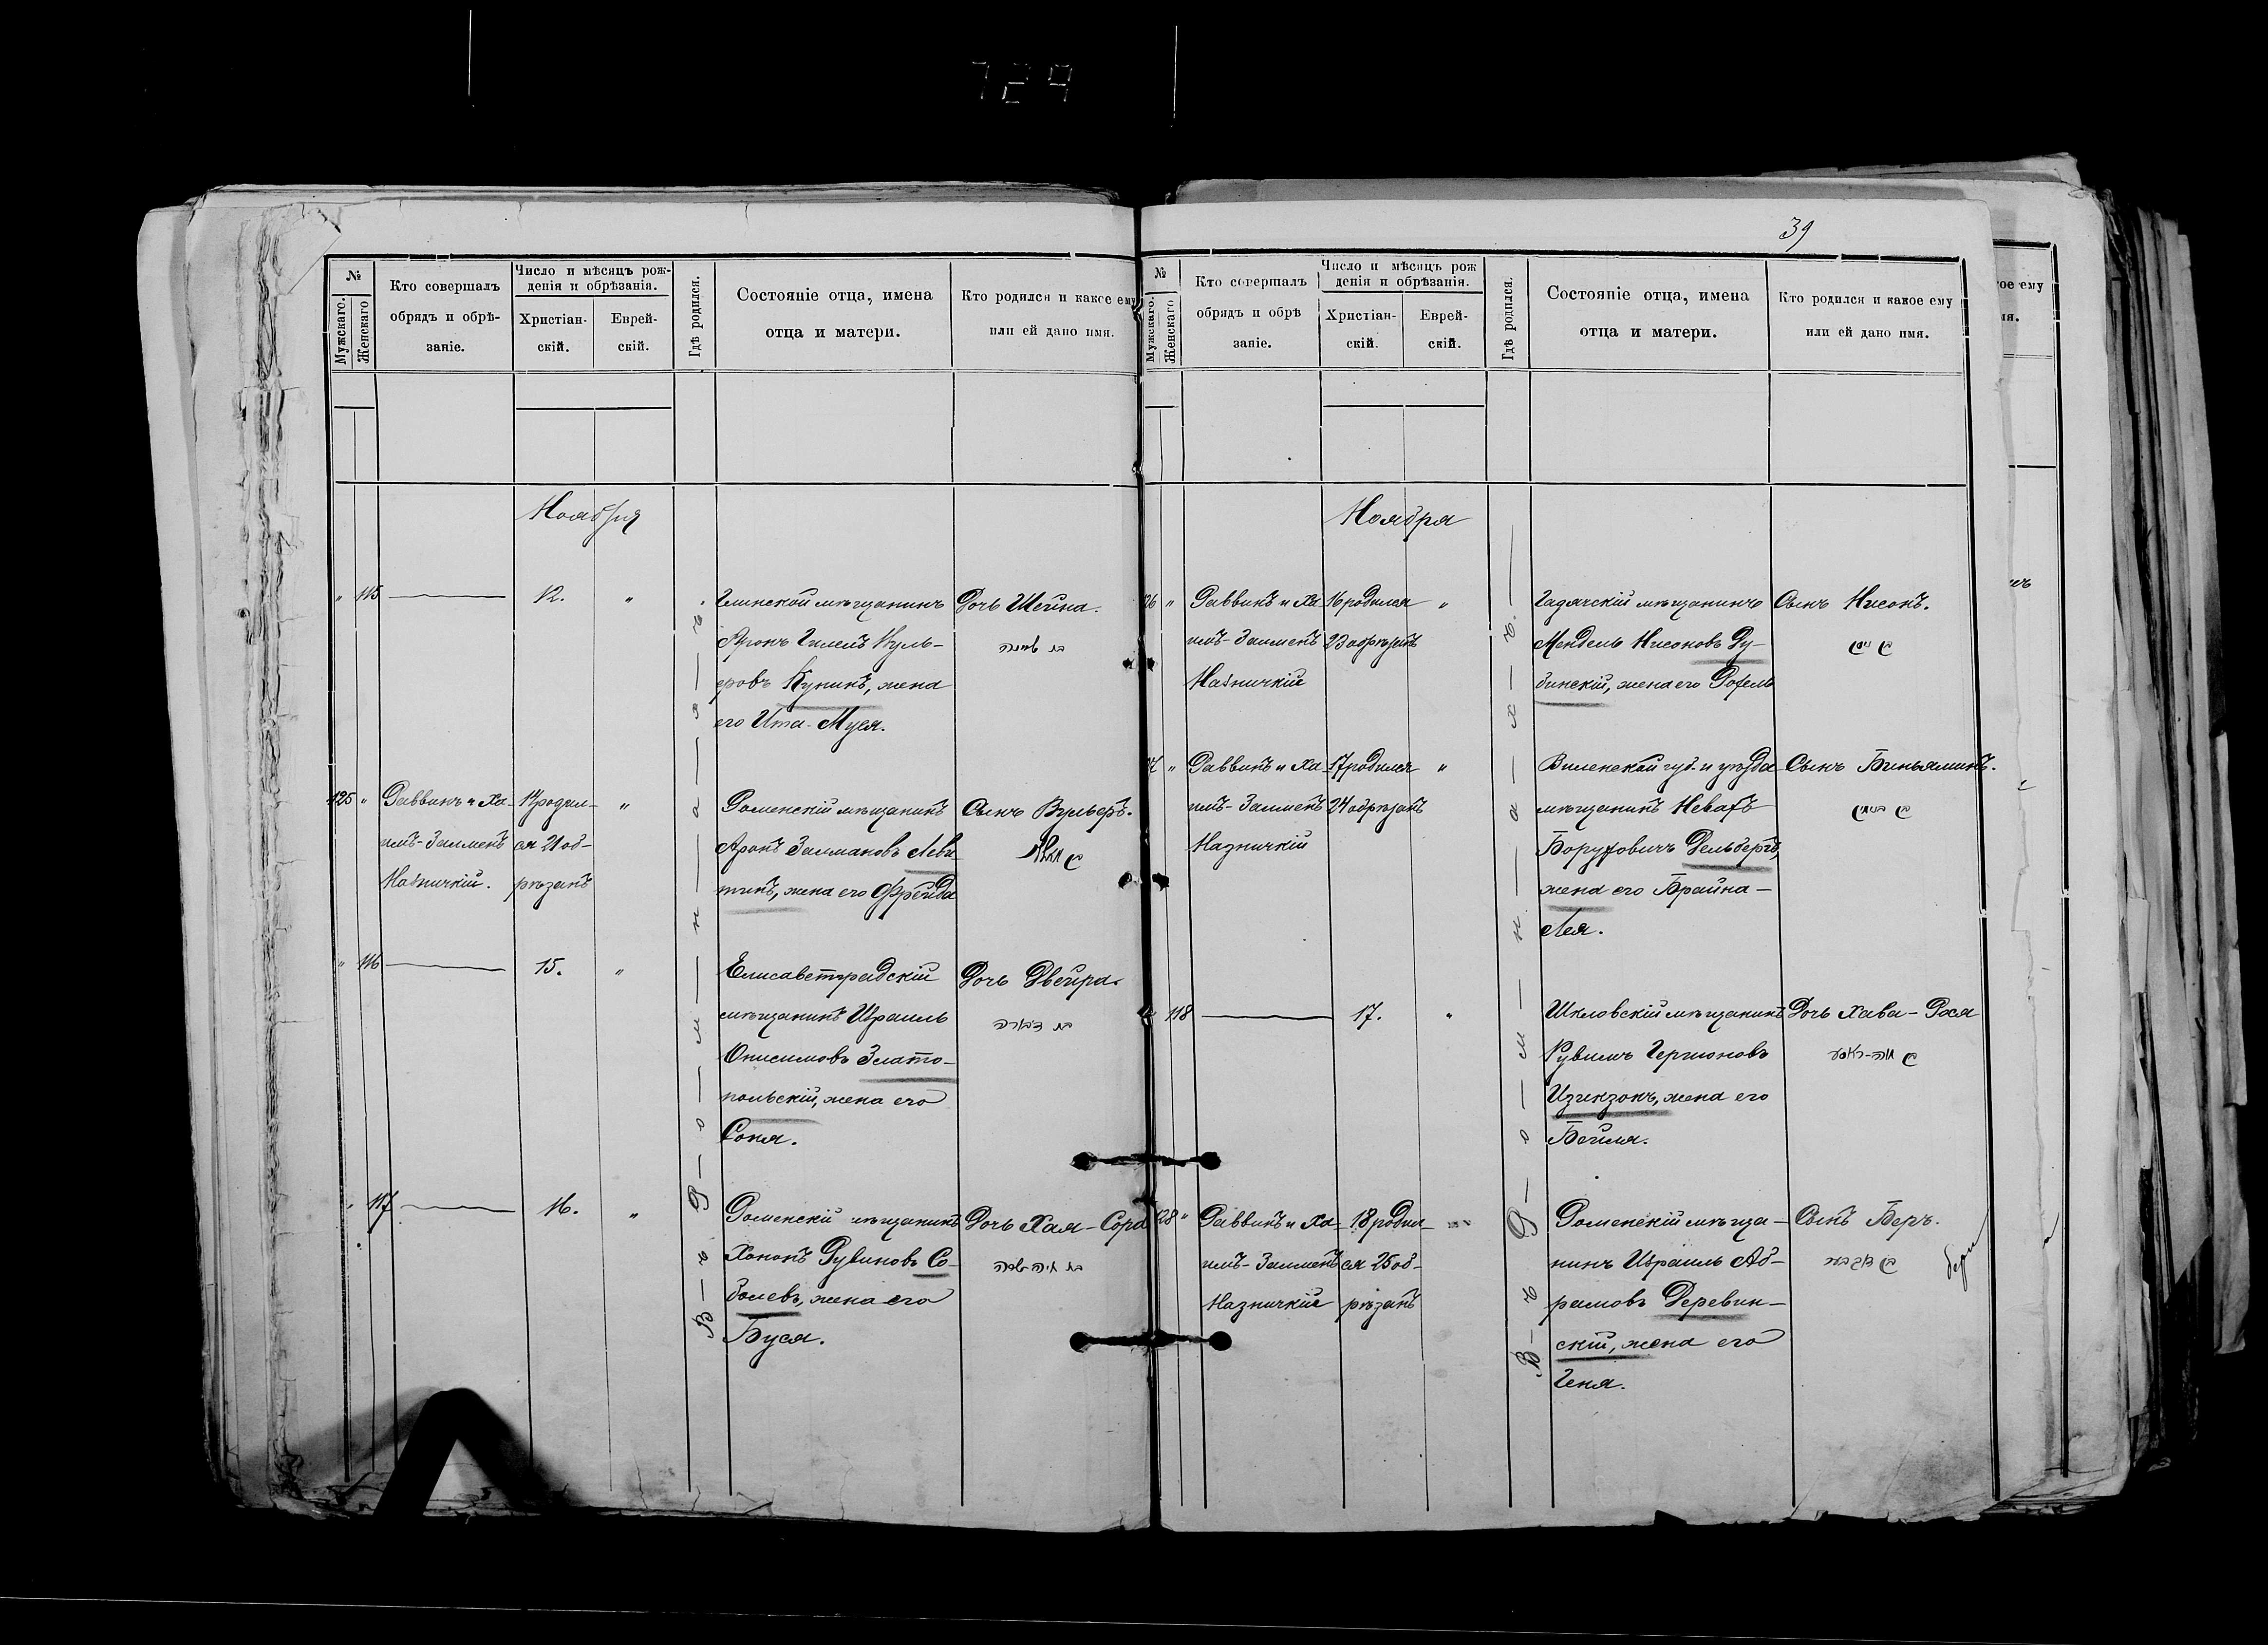 729
39
№
Мужскаго.
Женскаго
Кто совершалъ
обрядъ и обрѣ-
заніе.
Число и мѣсяцъ рож-
денія и обрѣзанія.
Христіан-
скій.
Еврей-
скій.
Гдѣ родился.
Состояніе отца, имена
отца и матери.
Кто родился и какое ему
или ей дано имя.
Ноября
" 115 12. "
Глинской мѣщанинъ
Аронъ Гилелъ
Кунинъ, жена
его Ита-Муся.
Дочь Шейна.
125 "
Раввинъ и Ха-
имъ-Залменъ
Назничкій.
14 родил-
ся 21 об-
рѣзанъ
"
Роменскій мѣщанинъ
Аронъ Залмановъ Леви
тинъ, жена его Фрейда
Сынъ Вульфъ.
" 116 15. "
Елисаветградскій
мѣщанинъ Израиль
Онисимовъ Злато-
польскій, жена его
Соня.
Дочь Двейра.
" 117 16. "
Роменскій мѣщанинъ
Хононъ Рувиновъ Со-
болевъ, жена его
Буся.
Дочь Хая-Сора
Въ Ромнахъ.
№
Мужскаго.
Женскаго
Кто совершалъ
обрядъ и обрѣ
заніе.
Число и мѣсяцъ рож
денія и обрѣзанія.
Христіан-
скій.
Еврей-
скій.
Гдѣ родился.
Состояніе отца, имена
отца и матери.
Кто родился и какое ему
или ей дано имя.
Ноября
26 "
Раввинъ и Ха
имъ-Залменъ
Назничкій
16 родился
23 обрѣзанъ
"
Гадячскій мѣщанинъ
Мендель Нисоновъ Ду-
бинскій, жена его Рохель
Сынъ Нисонъ.
27 "
Раввинъ и Ха
имъ-Залменъ
Назничкій
17 родился
24 обрѣзанъ
"
Виленской губ. и уѣзда
мѣщанинъ Невахъ
Боруховичъ Дельбергъ,
жена его Брайна-
Лея.
Сынъ Биньяминъ.
118 17. "
Шкловскій мѣщанинъ
Рувимъ Гершоновъ
Изикзонъ, жена его
Бейля.
Дочь Хава-Рася
28 "
Раввинъ и Ха-
имъ-Залменъ
Назничкій
18 родил-
ся 25 об-
рѣзанъ
Роменскій мѣща-
нинъ Израиль Аб-
рамовъ Деревин-
скій, жена его
Геня.
Сынъ Беръ.
Въ Ромнахъ.